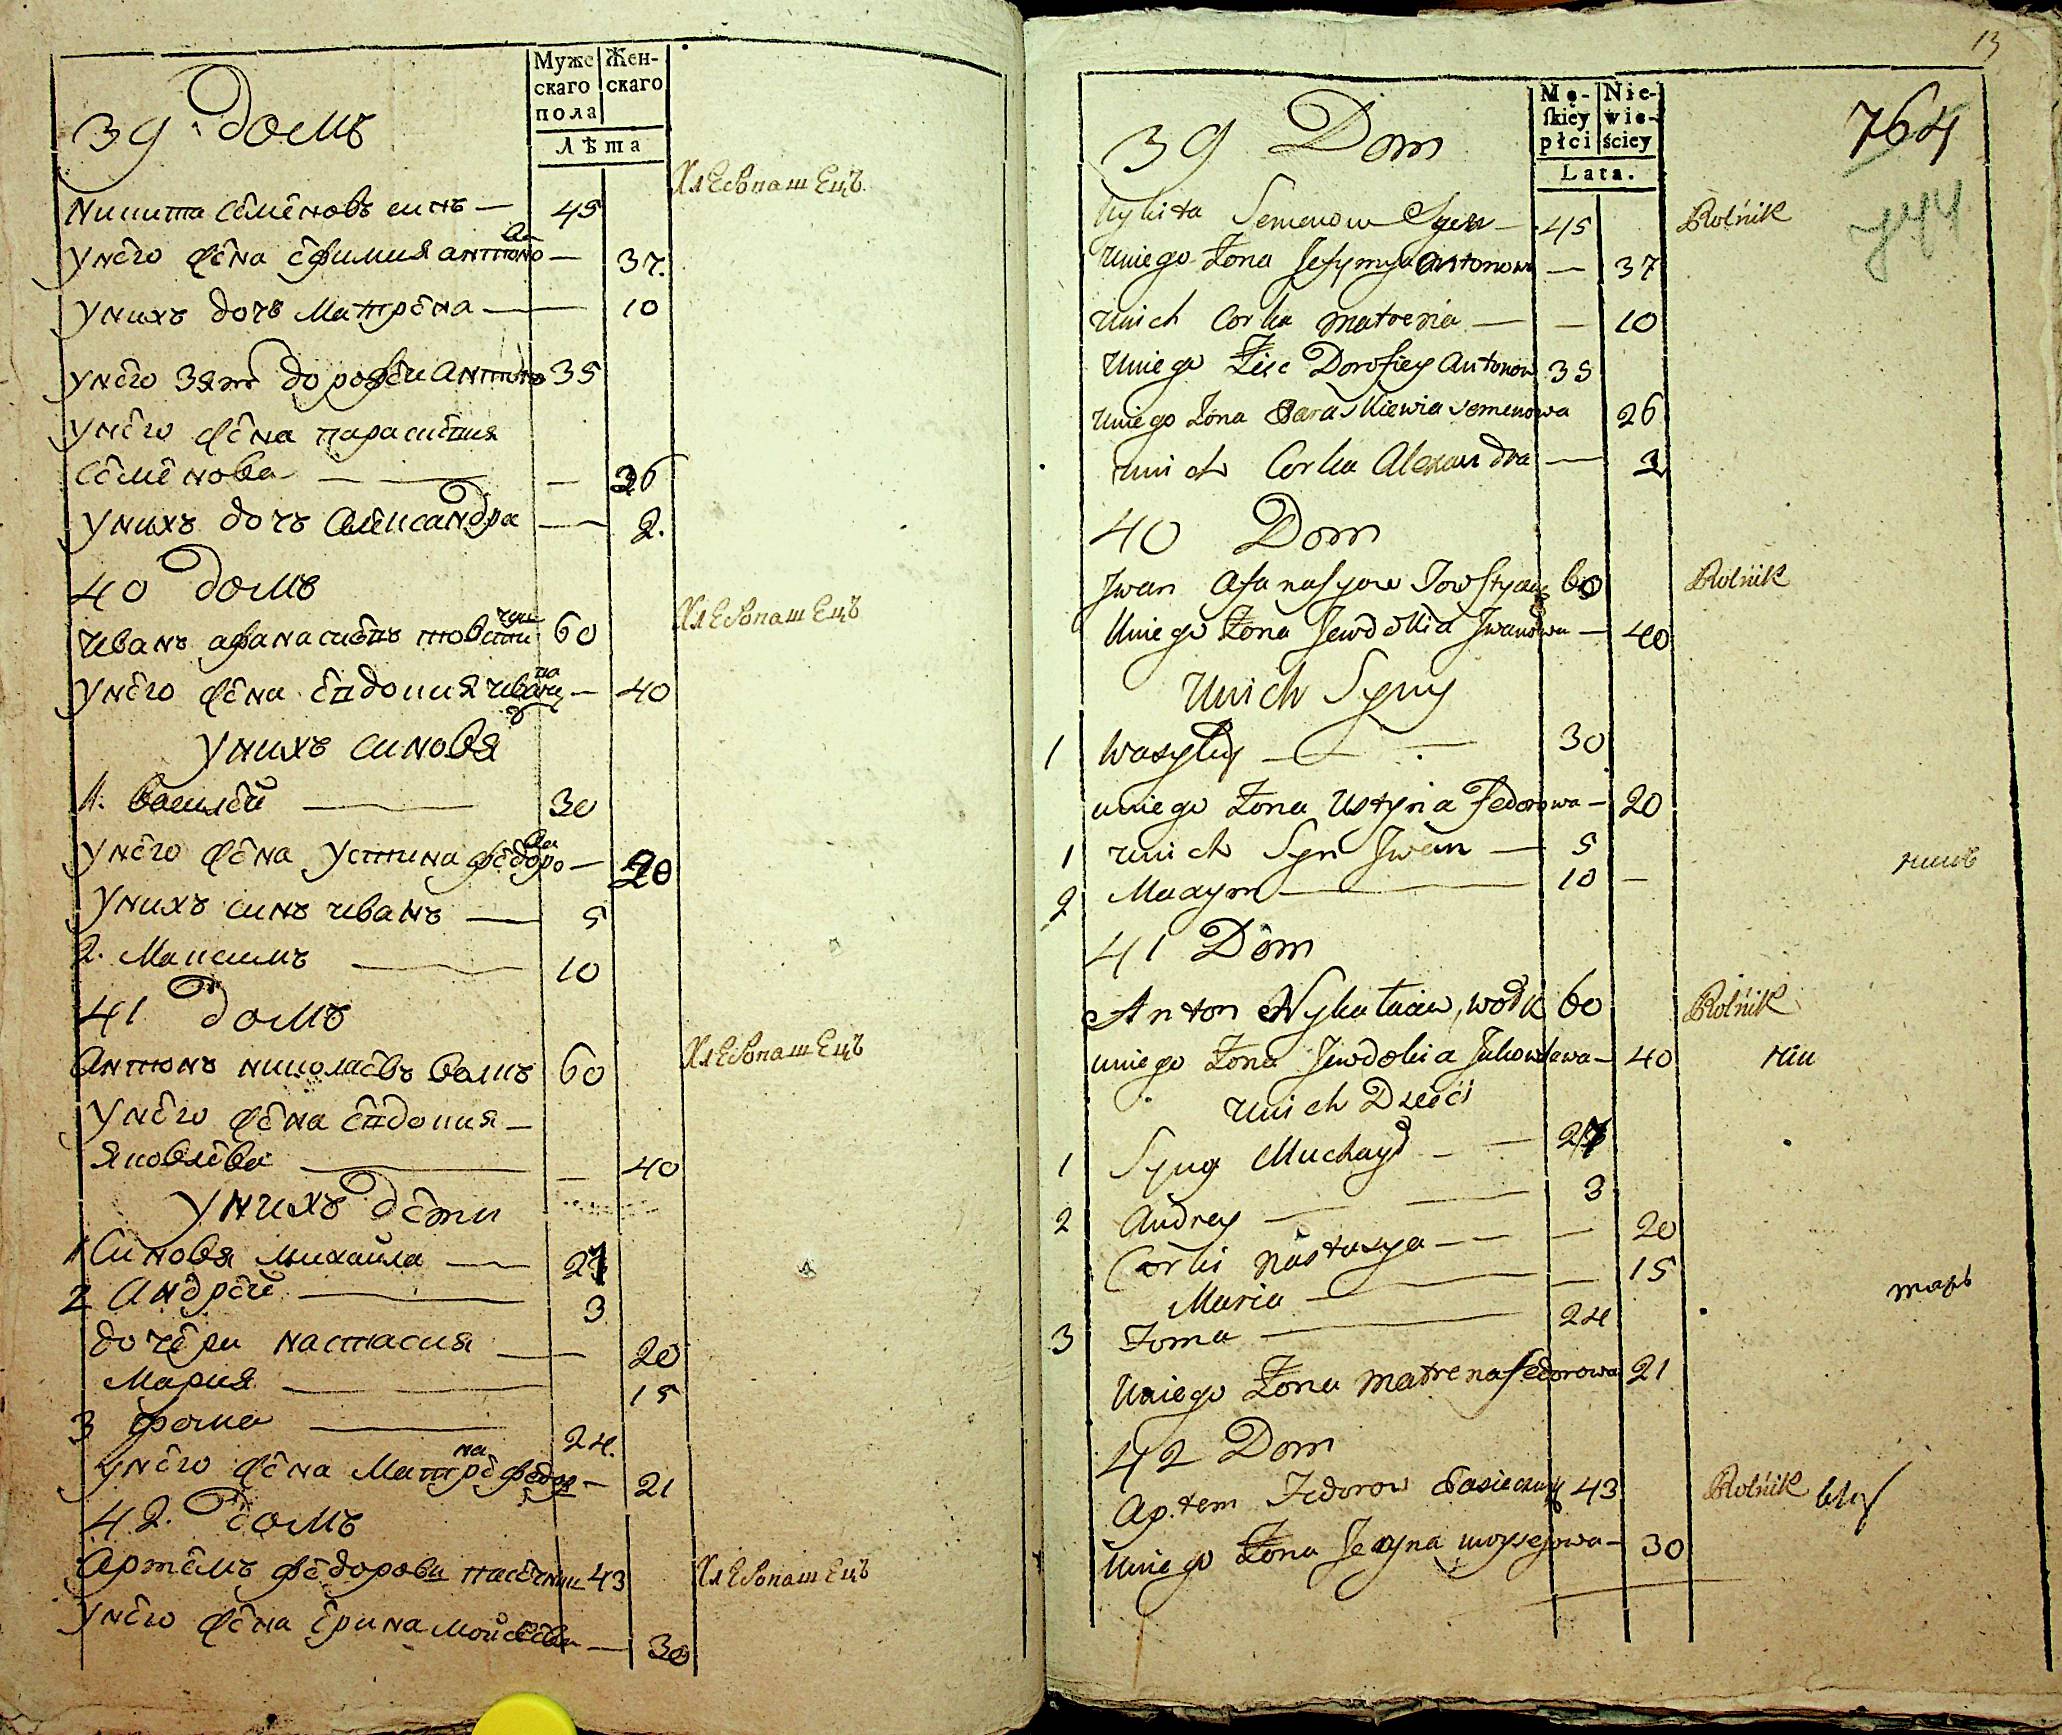 Муже
скаго
пола
Жен-
скаго
Лѣта
39. домъ
Никита Семеновъ синъ — 45
Хлебопашецъ
унего жена Ефимия антонова — 37.
унихъ дочь Матрена — 10
унего зять дорофеи Антоновъ 35
унего жена параскевия
Семенова — — — 26
унихъ дочъ Александра — 2.
40 домъ
Иванъ афанасиевъ товстики 60
Хлебопашецъ
унего жена Евдокия иванова — 40
унихъ синовя
1. василей — 30
унего жена Устина федорова — 20
унихъ синъ иванъ — 5
2. Максимъ — 10
41 домъ
Антонъ николаевъ волкъ 60
Хлебопашецъ
унего жена Евдокия —
Яковлева — — 40
унихъ дети
1 Синовя михаила — 27
2 Андрей — 3
дочери настасия — 20
Мария — 15
3 фома — 24.
унего жена Матрена федор — 21
42. домъ
Артемъ федоровъ пасечник 43
Хлебопашецъ
унего жена Ерина мойсеева — 30
13
Mę-
skiey
płci
Nie-
wie-
ściey
Lata.
764
744
39 Dom
Nykita Semenow Syn — 45
Rolnik
Uniego Żona Jefymya Antonowa — 37
Unich Corka Matrena — — 10
Uniego Zięc Dorofiey Antonow 35
Uniego Żona Paraskiewia Semenowa 26
Unich Corka Alexandra — 2
40 Dom
Jwan Afanasyow Towstyk 60
Rolnik
Uniego Żona Jewdokia Jwanowa — 40
Unich Syny
1 Wasyley — — 30
uniego Żona Ustyna Fedorowa — 20
1 unich Syn Jwan — 5
2 Maxym — 10 —
41 Dom
Anton Nykołaiow, wołk 60
Rolnik
uniego Żona Jewdokia Jakowlewa — 40
Unich Dzieci
1 Syny Muchaył — — 27
2 Andrey — — 3
Corki Nastasya — — — 20
Maria — — — 15
3 Foma — 24
Uniego Żona Matrena Fedorowa 21
42 Dom
Artem Fedorow Pasiecznyk 43
Rolnik
Uniego Żona Jeryna moysejowa — 30